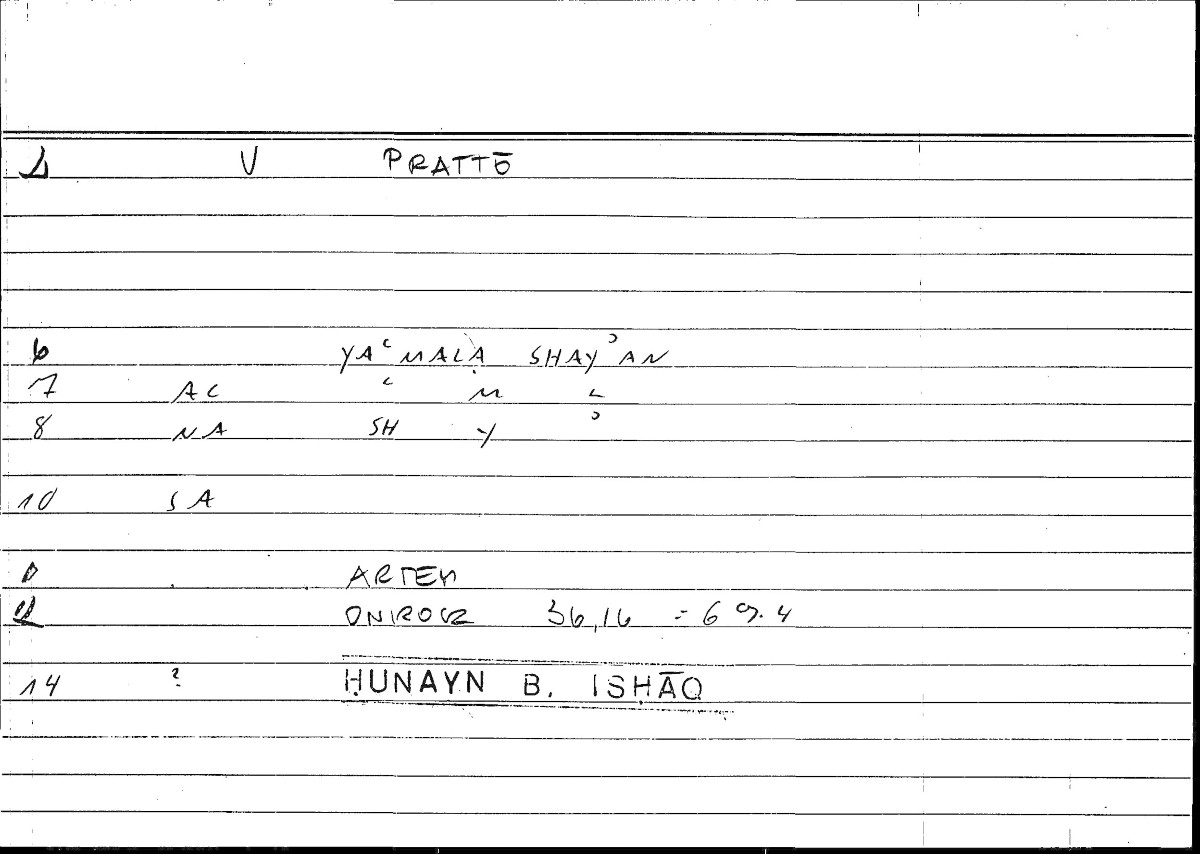 1 V PRATTŌ
6 YAʿMALA SHAYʾAN
7 AC ʿ M L
8 NA SH Y ʾ
10 SA
ARTEM
12 ONIROCR 36,16 = 69.4
14 ? ḤUNAYN B. ISḤĀQ